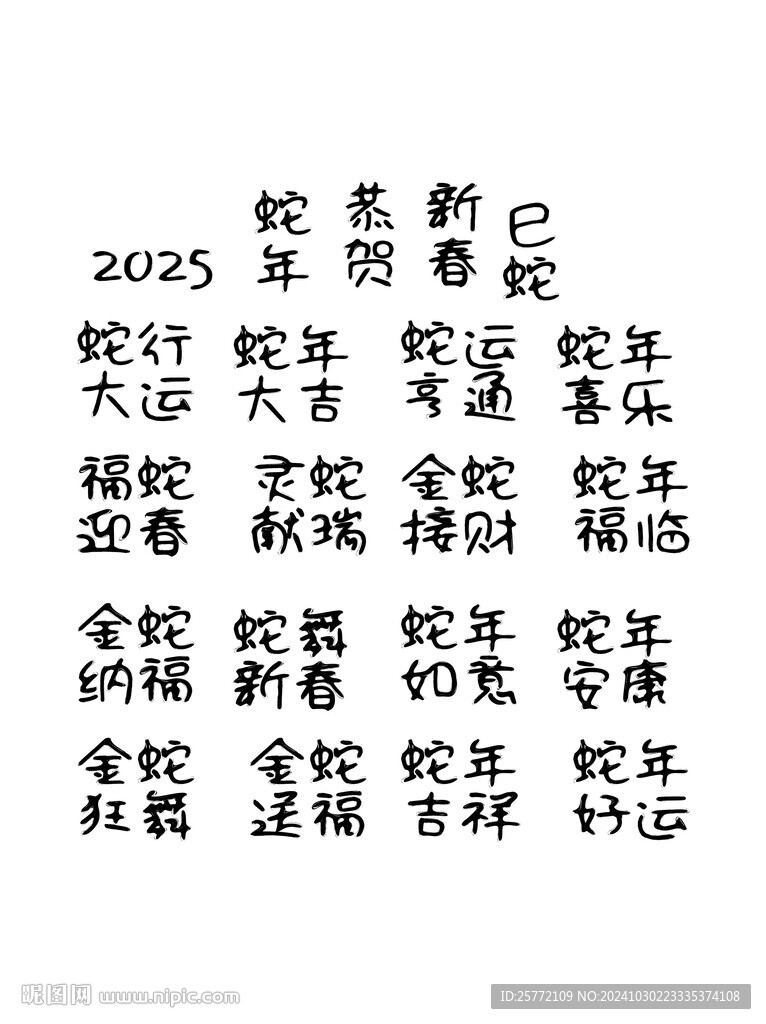 2025 蛇年 恭贺 新春 巳蛇
蛇行 蛇年 蛇运 蛇年
大运 大吉 亨通 喜乐
福蛇 灵蛇 金蛇 蛇年
迎春 献瑞 接财 福临
金蛇 蛇舞 蛇年 蛇年
纳福 新春 如意 安康
金蛇 金蛇 蛇年 蛇年
狂舞 送福 吉祥 好运
昵图网 www.nipic.com
ID:25772109 NO:20241030223335374108